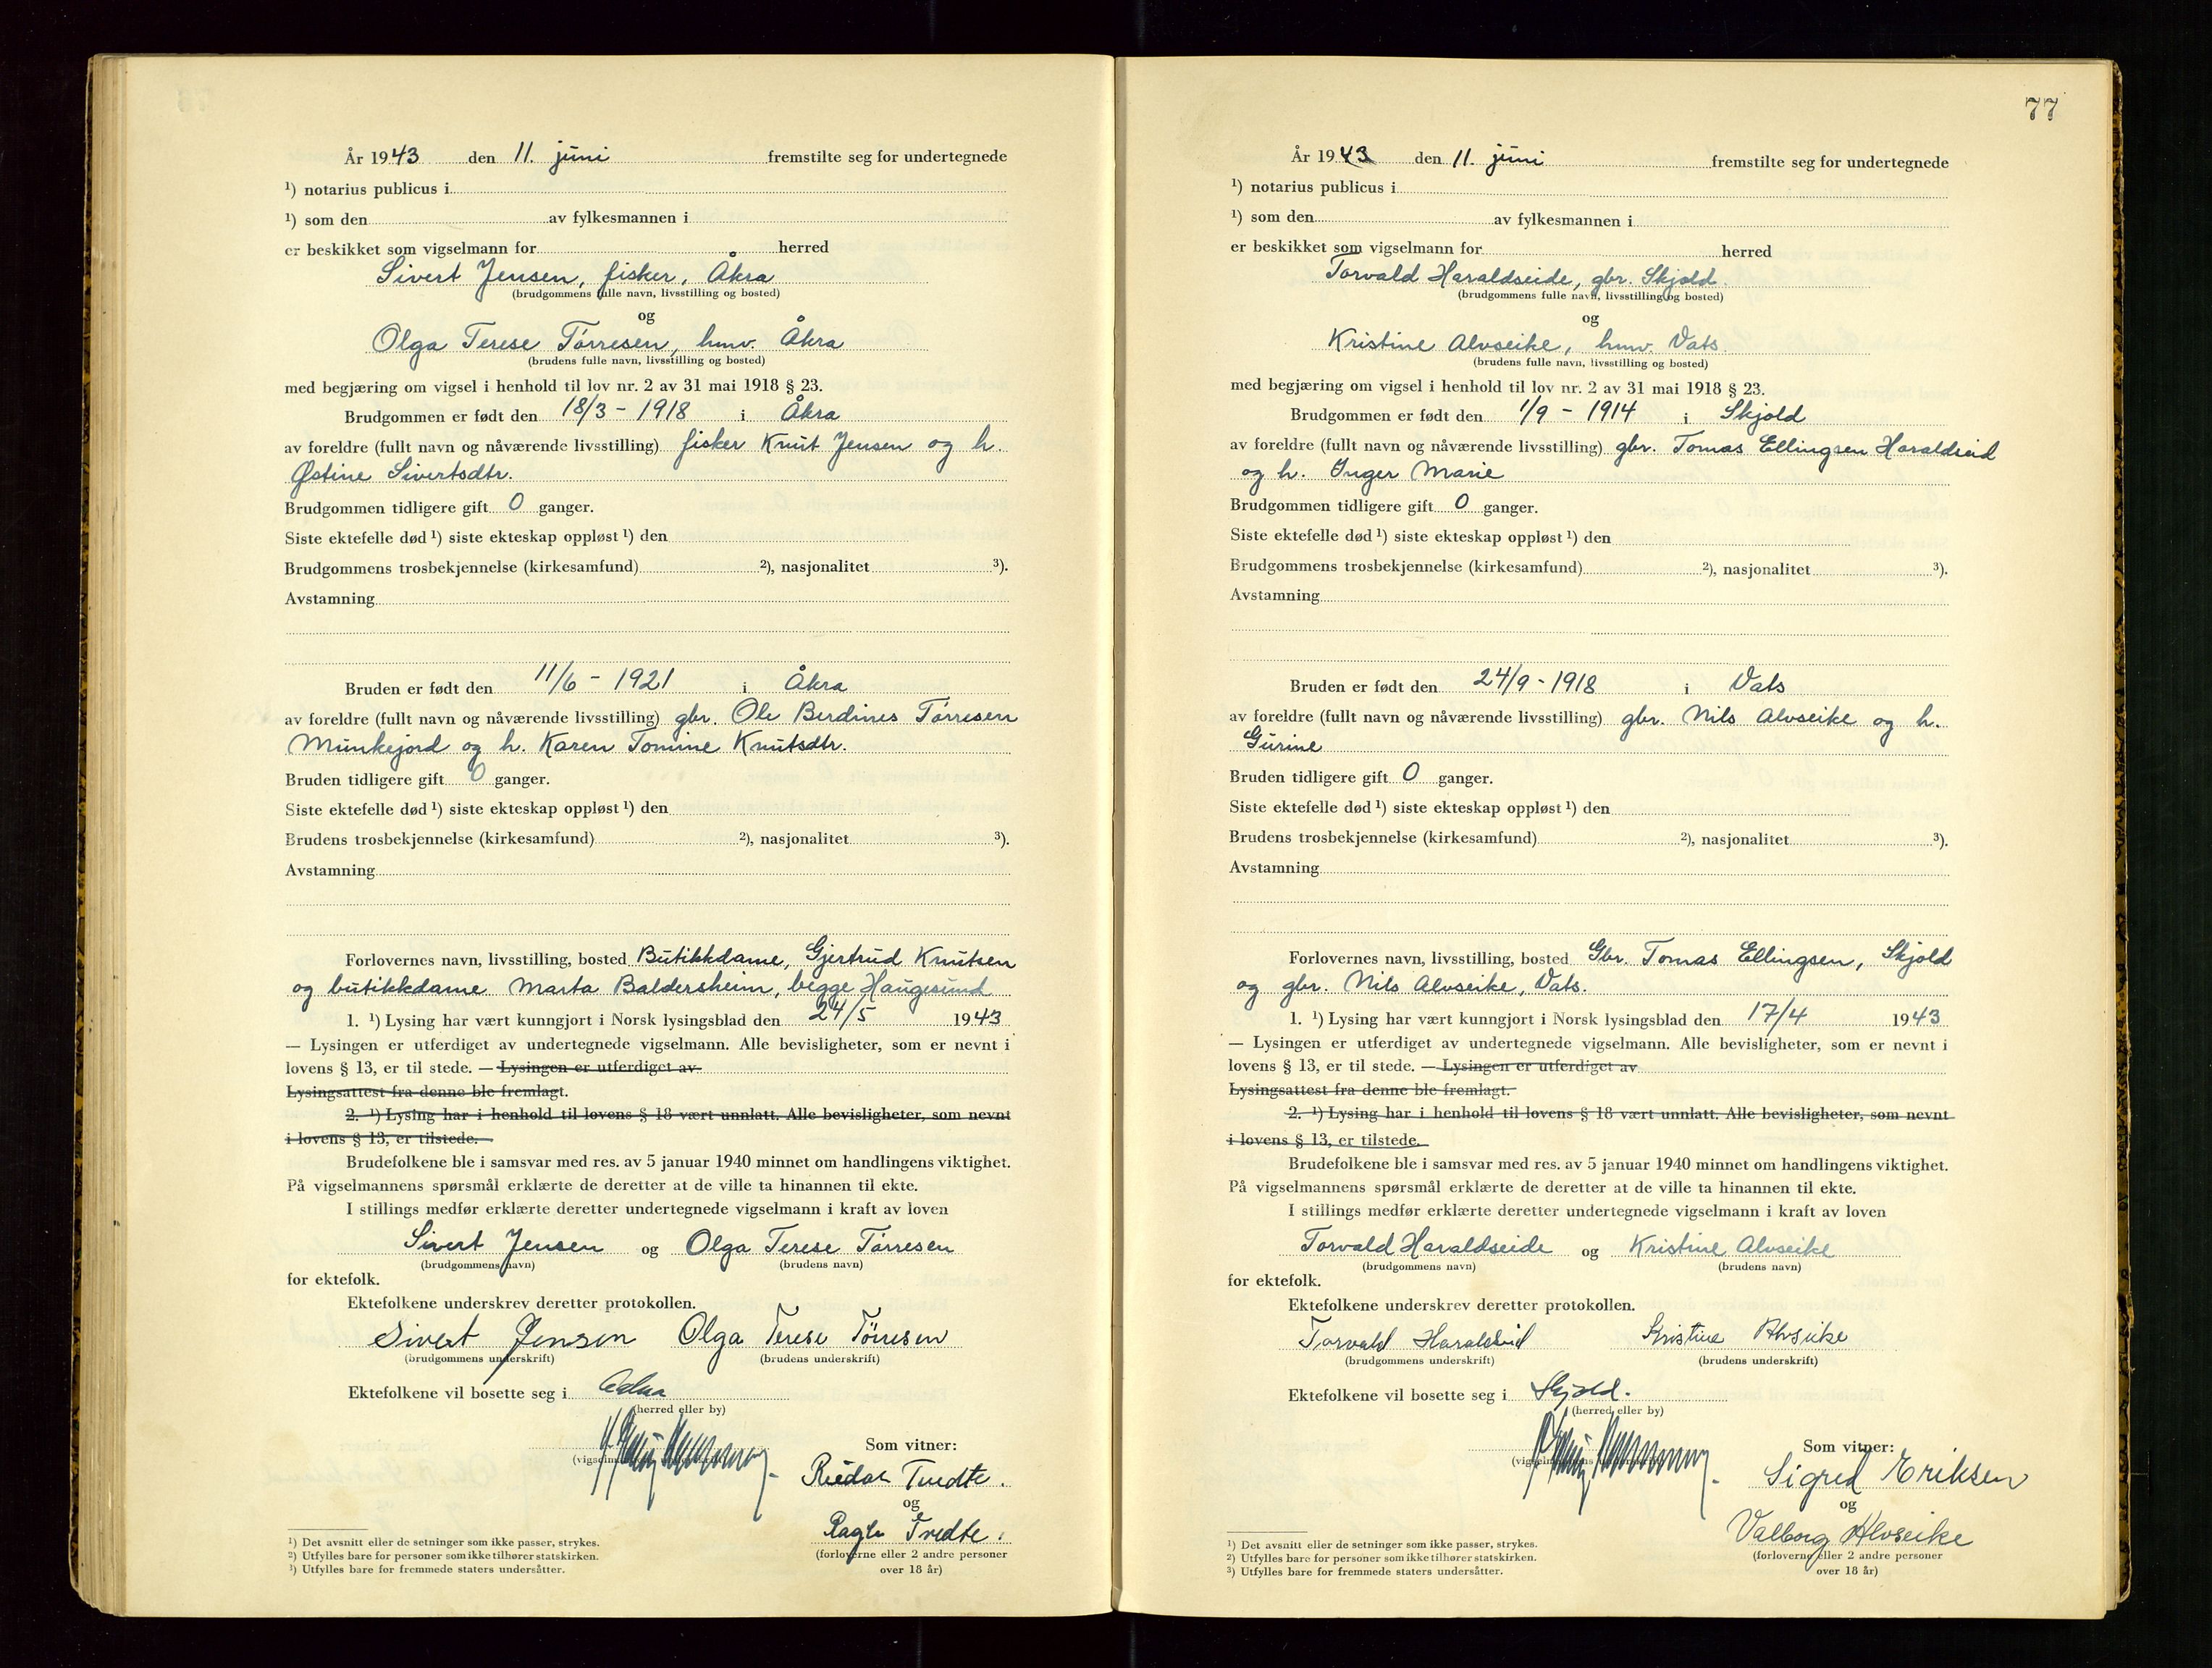 År 1943 den 11. juni fremstilte seg for undertegnede
¹) notarius publicus i
¹) som den av fylkesmannen i
er beskikket som vigselmann for herred
Sivert Jensen, fisker, Åkra
(brudgommens fulle navn, livsstilling og bosted)
og
Olga Terese Tørresen, hmv. Åkra
(brudens fulle navn, livsstilling og bosted)
med begjæring om vigsel i henhold til lov nr. 2 av 31 mai 1918 § 23.
Brudgommen er født den 18/3 - 1918 i Åkra
av foreldre (fullt navn og nåværende livsstilling) fisker Knut Jensen og h.
Østine Sivertsdtr.
Brudgommen tidligere gift 0 ganger.
Siste ektefelle død ¹) siste ekteskap oppløst ¹) den
Brudgommens trosbekjennelse (kirkesamfund) ²), nasjonalitet ³).
Avstamning
Bruden er født den 11/6 - 1921 i Åkra
av foreldre (fullt navn og nåværende livsstilling) gbr. Ole Berdines Tørresen
Munkejord og h. Karen Tomine Knutsdtr.
Bruden tidligere gift 0 ganger.
Siste ektefelle død ¹) siste ekteskap oppløst ¹) den
Brudens trosbekjennelse (kirkesamfund) ²), nasjonalitet ³).
Avstamning
Forlovernes navn, livsstilling, bosted Butikkdame, Gjertrud Knutsen
og butikkdame Marta Baldersheim, begge Haugesund
1. ¹) Lysing har vært kunngjort i Norsk lysingsblad den 24/5 1943
— Lysingen er utferdiget av undertegnede vigselmann. Alle bevisligheter, som er nevnt i
lovens § 13, er til stede. — Lysingen er utferdiget av
Lysingsattest fra denne ble fremlagt.
2. ¹) Lysing har i henhold til lovens § 18 vært unnlatt. Alle bevisligheter, som nevnt
i lovens § 13, er tilstede.
Brudefolkene ble i samsvar med res. av 5 januar 1940 minnet om handlingens viktighet.
På vigselmannens spørsmål erklærte de deretter at de ville ta hinannen til ekte.
I stillings medfør erklærte deretter undertegnede vigselmann i kraft av loven
Sivert Jensen og Olga Terese Tørresen
(brudgommens navn) (brudens navn)
for ektefolk.
Ektefolkene underskrev deretter protokollen.
Sivert Jensen Olga Terese Tørresen
(brudgommens underskrift) (brudens underskrift)
Ektefolkene vil bosette seg i
(herred eller by)
Som vitner:
og
(forloverne eller 2 andre personer
over 18 år)
¹) Det avsnitt eller de setninger som ikke passer, strykes.
²) Utfylles bare for personer som ikke tilhører statskirken.
³) Utfylles bare for fremmede staters undersåtter.
77
År 1943 den 11. juni fremstilte seg for undertegnede
¹) notarius publicus i
¹) som den av fylkesmannen i
er beskikket som vigselmann for herred
Torvald Haraldseide, gbr. Skjold.
(brudgommens fulle navn, livsstilling og bosted)
og
Kristine Alvseike, hmv. Vats.
(brudens fulle navn, livsstilling og bosted)
med begjæring om vigsel i henhold til lov nr. 2 av 31 mai 1918 § 23.
Brudgommen er født den 1/9 - 1914 i Skjold
av foreldre (fullt navn og nåværende livsstilling) gbr. Tomas Ellingsen Haraldseid
og h. Inger Marie
Brudgommen tidligere gift 0 ganger.
Siste ektefelle død ¹) siste ekteskap oppløst ¹) den
Brudgommens trosbekjennelse (kirkesamfund) ²), nasjonalitet ³).
Avstamning
Bruden er født den 24/9 - 1918 i Vats
av foreldre (fullt navn og nåværende livsstilling) gbr. Nils Alvseike og h.
Gurine
Bruden tidligere gift 0 ganger.
Siste ektefelle død ¹) siste ekteskap oppløst ¹) den
Brudens trosbekjennelse (kirkesamfund) ²), nasjonalitet ³).
Avstamning
Forlovernes navn, livsstilling, bosted Gbr. Tomas Ellingsen, Skjold
og gbr. Nils Alvseike, Vats.
1. ¹) Lysing har vært kunngjort i Norsk lysingsblad den 17/4 1943
— Lysingen er utferdiget av undertegnede vigselmann. Alle bevisligheter, som er nevnt i
lovens § 13, er til stede. — Lysingen er utferdiget av
Lysingsattest fra denne ble fremlagt.
2. ¹) Lysing har i henhold til lovens § 18 vært unnlatt. Alle bevisligheter, som nevnt
i lovens § 13, er tilstede.
Brudefolkene ble i samsvar med res. av 5 januar 1940 minnet om handlingens viktighet.
På vigselmannens spørsmål erklærte de deretter at de ville ta hinannen til ekte.
I stillings medfør erklærte deretter undertegnede vigselmann i kraft av loven
Torvald Haraldseide og Kristine Alvseike
(brudgommens navn) (brudens navn)
for ektefolk.
Ektefolkene underskrev deretter protokollen.
Torvald Haraldseid Kristine Alvseike
(brudgommens underskrift) (brudens underskrift)
Ektefolkene vil bosette seg i Skjold.
(herred eller by)
Som vitner:
Sigred Eriksen
og
Valborg Alvseike
(forloverne eller 2 andre personer
over 18 år)
¹) Det avsnitt eller de setninger som ikke passer, strykes.
²) Utfylles bare for personer som ikke tilhører statskirken.
³) Utfylles bare for fremmede staters undersåtter.